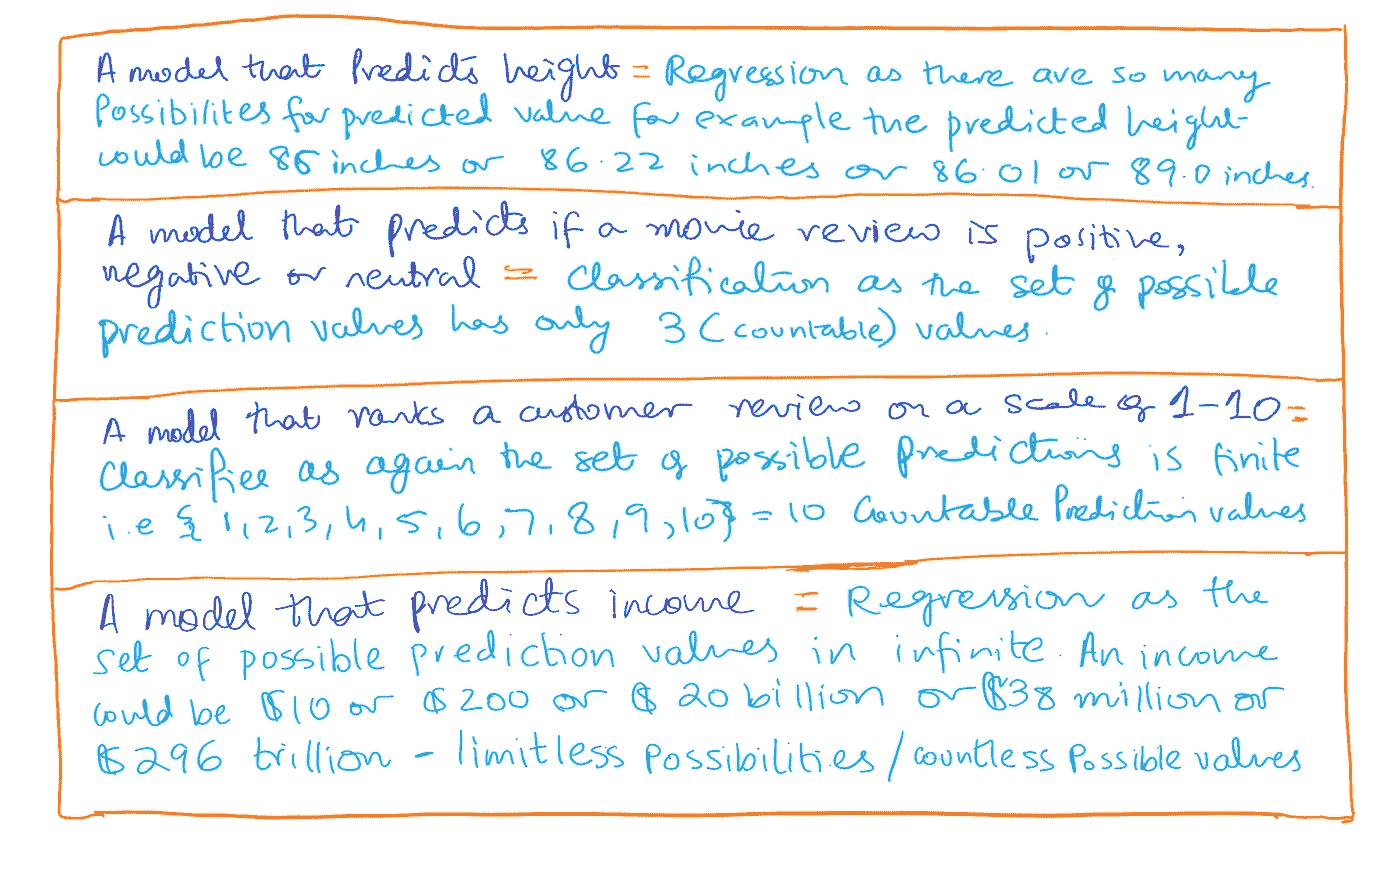 A model that Predicts height = Regression as there are so many
Possibilites for predicted value for example the predicted height
could be 86 inches or 86.22 inches or 86.01 or 89.0 inches.
A model that predicts if a movie review is positive,
negative or neutral = Classification as the set of possible
prediction values has only 3 (countable) values.
A model that ranks a customer review on a scale of 1-10 =
Classifier as again the set of possible Predictions is finite
i.e {1,2,3,4,5,6,7,8,9,10} = 10 Countable Prediction values
A model that predicts income = Regression as the
set of possible prediction values in infinite. An income
could be $10 or $200 or $20 billion or $38 million or
$296 trillion - limitless Possibilities/countless Possible values